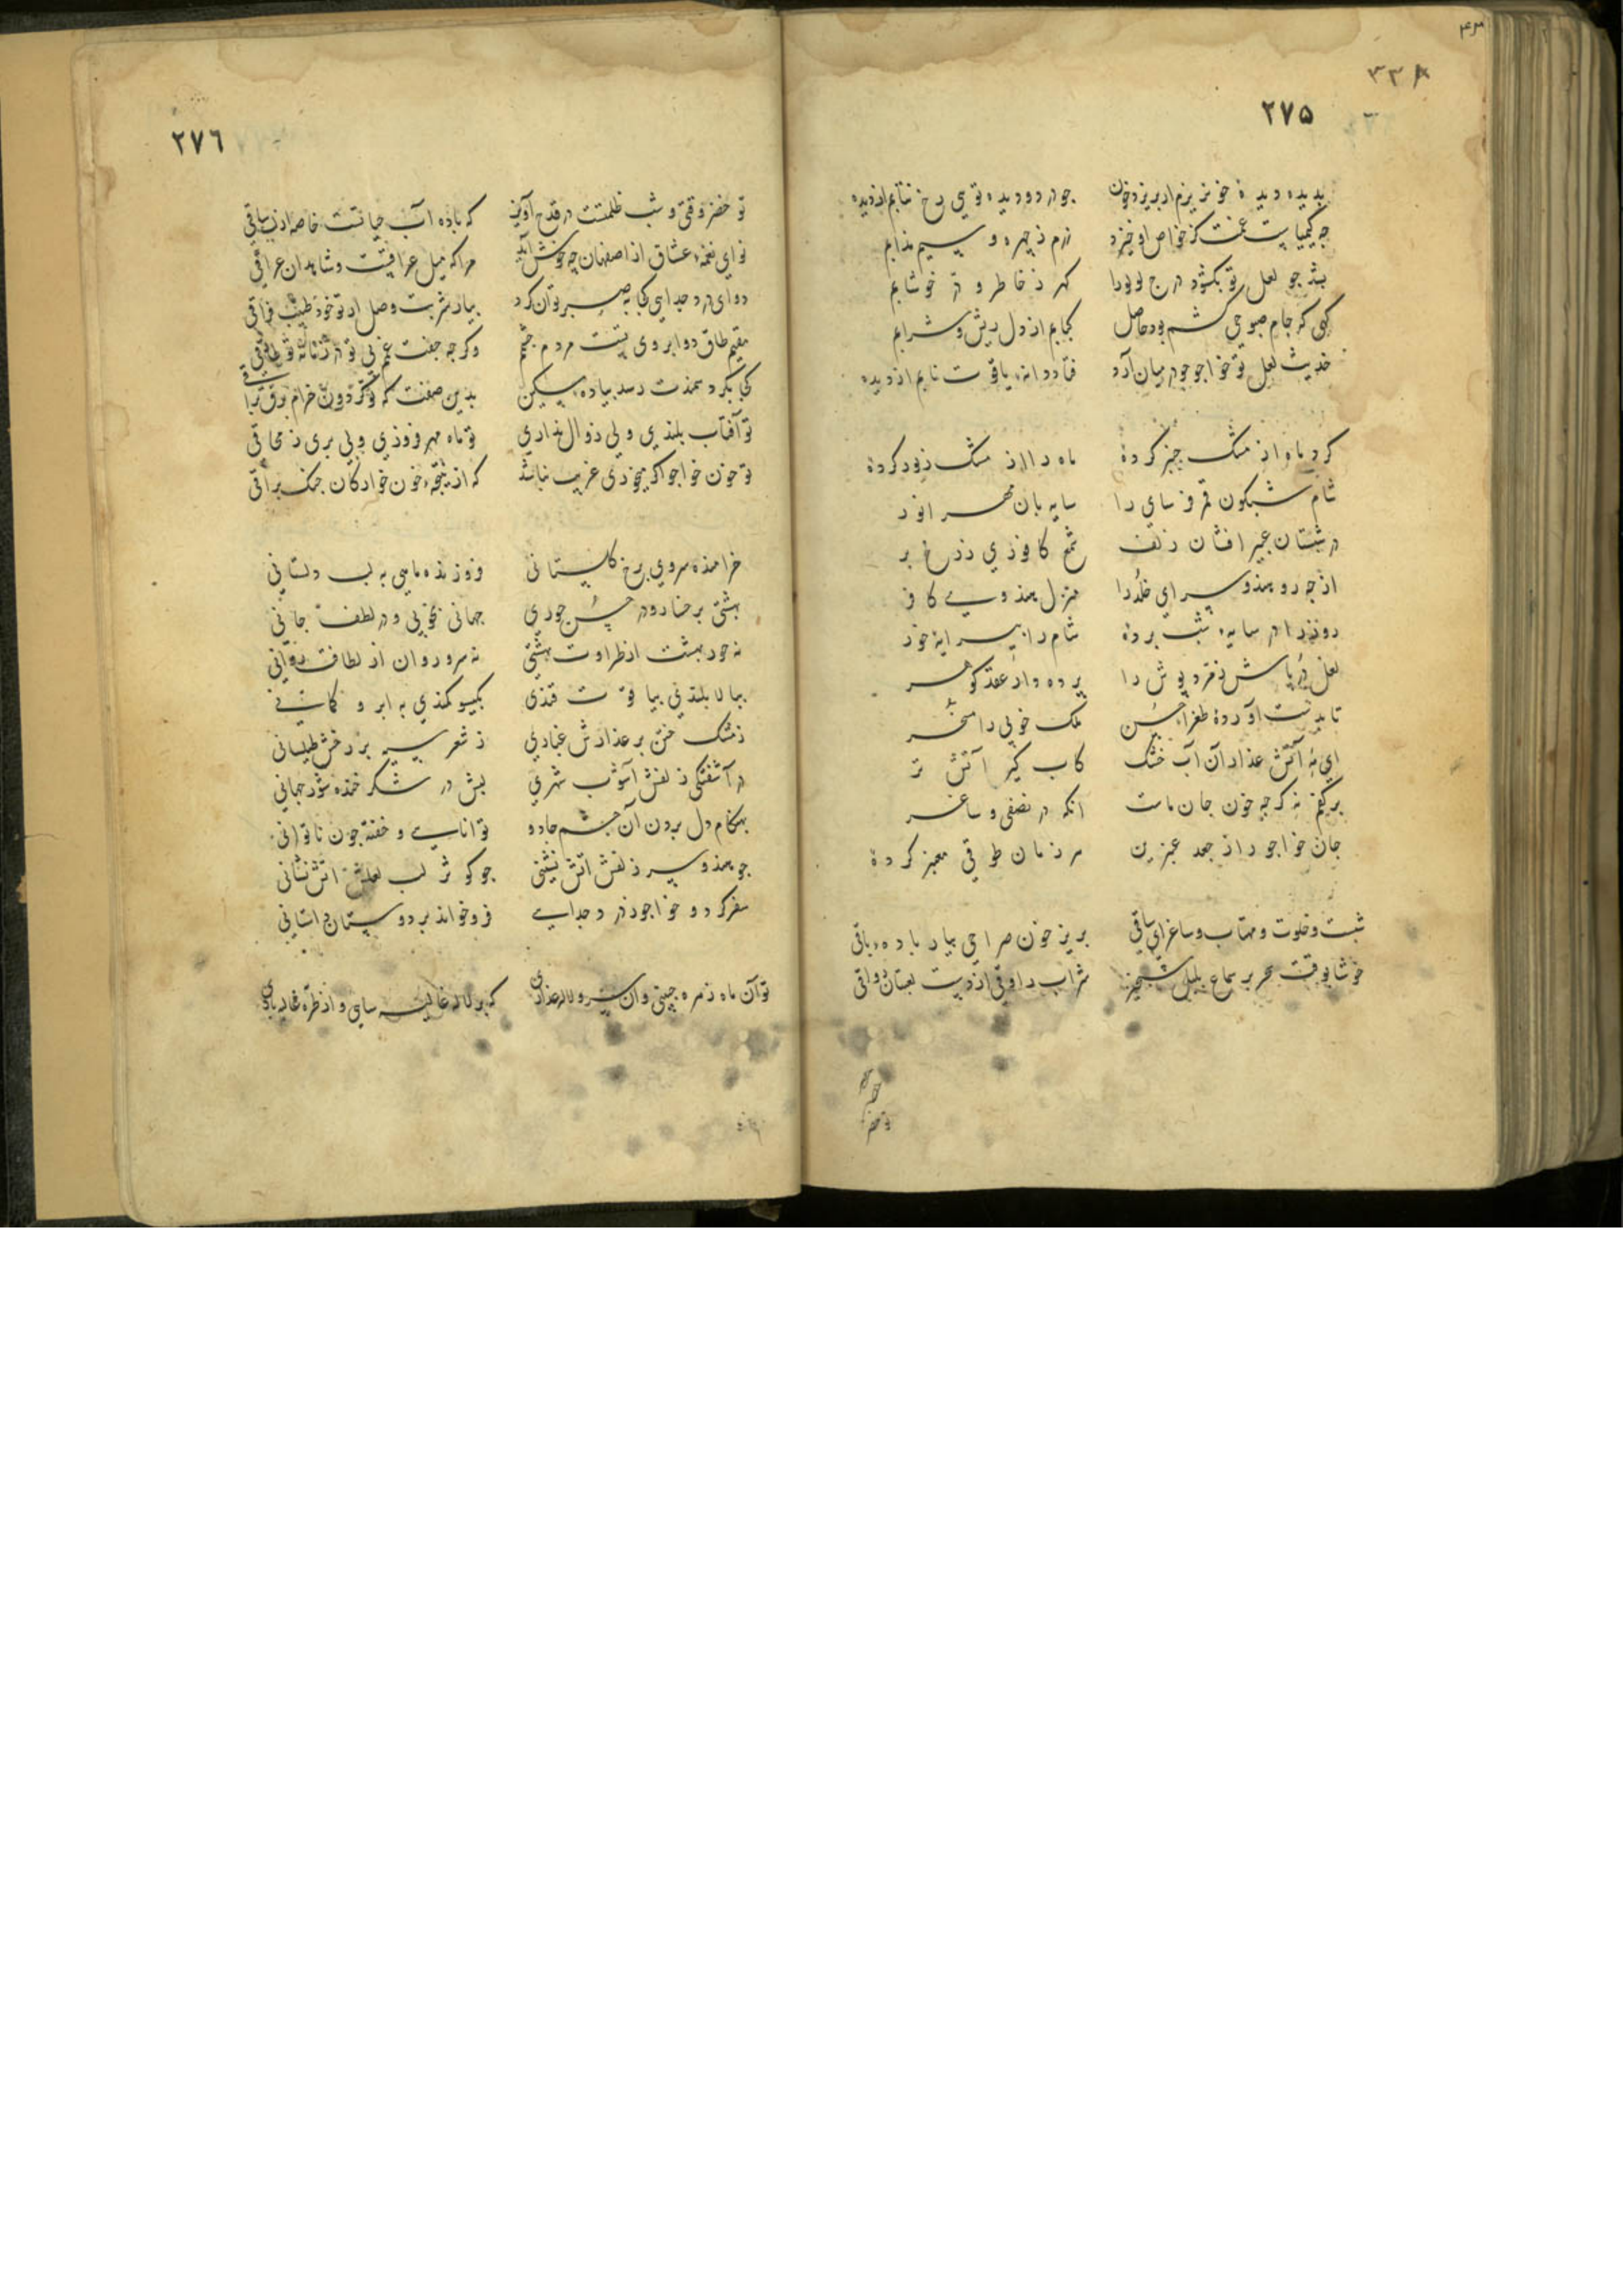 ۲۷۵
بدیده دیدۀ خونریزم ار بریزد خون جو در دو دیده توی رخ نتابم از دیده
جه کیمیاییست غمت کز خواص او خیزد زرم ز جهره و سیم مذابم
بشد جو لعل تو بکشود درج لولو را کهر ز خاطر و در خوشابم
کهی که جام صبوحی کشم بود حاصل کبابم از دل ریش و شرابم
حدیث لعل تو خواجو جو در میان آرد فتاد دانۀ یاقوت نابم از دیده
کرد ماه از مشک جنبر کرده ماه را از مشک زیور کرده
شام شبکون قمر فرسای را سایه بان مهر انور
در شبستان عبیر افشان زلف شمع کافوری ز رخ بر
از جه رو هندو سرای خلد را منزل هندوی کافر
روز را در سایۀ شب برده شام را بیرایۀ خور
لعل در باش زمرد بوش را برده دار عقد کوهر
تا بدست آورده طغراء حسن ملک خوبی را مسخر
ای به آتش عذار آن آب خشک کاب کیر آتش تر
برکفم نه کرجه خون جان ماست انکه در نصفی و ساغر
جان خواجو را ز جعد عنبرین هر زمان طوقی معنبر کرده
شبست و خلوت و مهتاب و ساغر ای ساقی بریز خون صراحی بیار بادۀ باقی
خوشا بوقت سحر بر سماع بلبل شبخیز شراب راوقی از دست لعبتان وثاقی
۲۷٦
تو خضر وقتی و شب ظلمتست در قدح آویز که باده آب حیاتست خاصه از لب ساقی
نوای نغمۀ عشاق از اصفهان چه خوش آید مرا که میل عراقست و شاهدان عراقی
دوای درد جدایی کجا به صبر توان کرد بیار شربت وصل ار تو خود طبیب فراقی
مقیم طاق دو ابروی تست مردم جشمم وکرجه جفت غمم بی تو در زمانه تو طاقی
کجا بکرد سمندت رسد بیادۀ مسکین بدین صفت که تو کردون خرام برق براقی
تو آفتاب بلندی ولی زوال نداری تو ماه مهر فروزی ولی بری ز محاقی
تو خون خواجو اکر میخوری غریب نباشد که از نتیجۀ خون خوارکان جنک براقی
خرامنده سروی برخ کلستانی فروزنده ماهی به لب دلستانی
بهشتی برخسار و در حسن حوری جهانی بخوبی و در لطف جانی
نه حور بهشت از طراوت بهشتی نه سرو روان از لطافت روانی
ببالا بلندی بیاقوت قندی بکیسو کمندی به ابرو کمانی
ز مشک ختن بر عذارش غباری ز شعر سیه بر رخش طیلسانی
در آشفتکی زلفش آشوب شهری لبش در شکر خنده شور جهانی
بهنکام دل بردن آن جشم جادو توانایی و خفته جون ناتوانی
جو هندو سر زلفش اتش نشینی جو کوثر لب لعلش اتش نشانی
سفر کرد و خواجو ز درد جدایی فرو خواند بر دوستان داستانی
تو آن ماه زهره جبینی و آن سرو لاله عذاری که بر لاله غالیه سایی و از طره غالیه باری